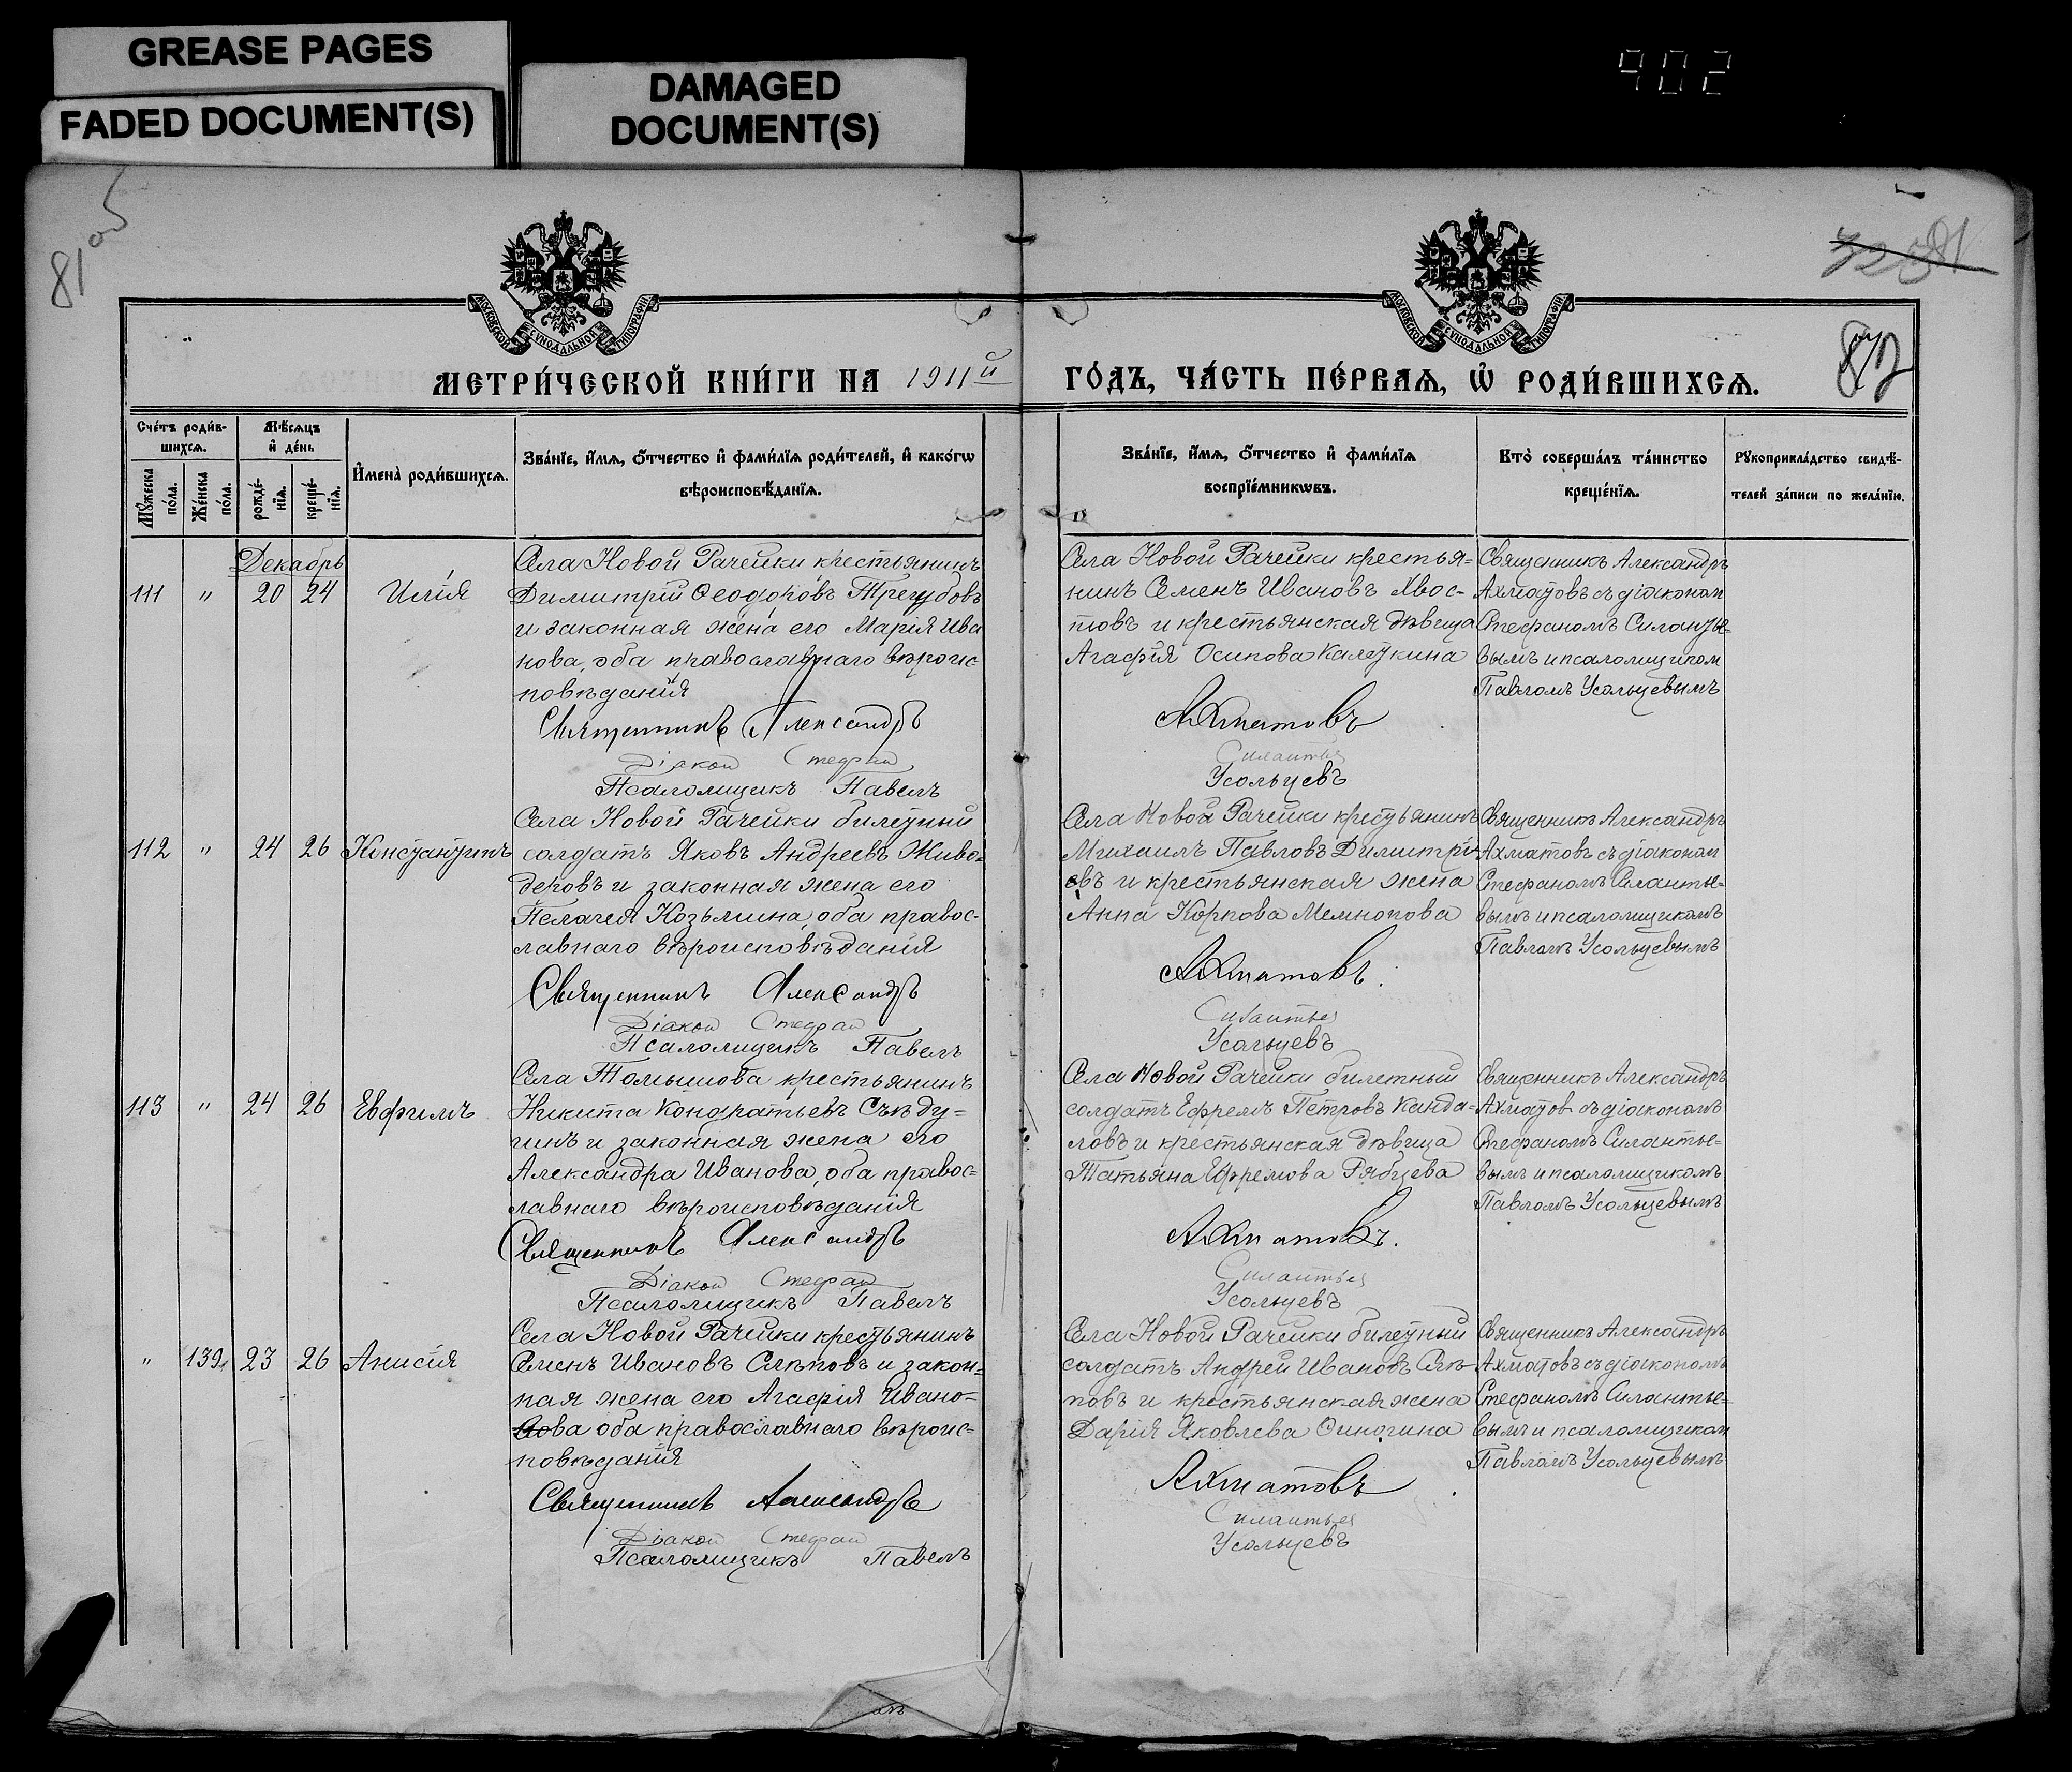 GREASE PAGES
FADED DOCUMENT(S)
DAMAGED
DOCUMENT(S)
902
81 об
81
82
МОСКОВСКОЙ СѴНОДАЛЬНОЙ ТИПОГРАФІИ
МОСКОВСКОЙ СѴНОДАЛЬНОЙ ТИПОГРАФІИ
МЕТРИ́ЧЕСКОЙ КНИ́ГИ НА 1911й ГО́ДЪ, ЧА́СТЬ ПЕ́РВАѦ, Ѡ҆ РОДИ́ВШИХСѦ.
Сче́тъ роди́в-
шихсѧ.
Мꙋ́жеска по́ла.
Же́нска по́ла.
Мѣ́сѧцъ
и҆ де́нь
рожде́-
нїѧ.
креще́-
нїѧ.
И҆мена̀ роди́вшихсѧ.
Зва́нїе, и҆́мѧ, ѻ҆́тчество и҆ фами́лїѧ роди́телей, и҆ како́гѡ
вѣроисповѣ́данїѧ.
Зва́нїе, и҆́мѧ, ѻ҆́тчество и҆ фами́лїѧ
воспрїе́мникѡвъ.
Кто̀ соверша́лъ та́инство
креще́нїѧ.
Рꙋкоприкла́дство свидѣ́-
телей за́писи по жела́нїю.
Декабрь
111 " 20 24 Илія
Села Новой Рачейки крестьянинъ
Димитрій Ѳеодоровъ Трегубовъ
и законная жена его Марія Ива
нова, оба православнаго вѣроис
повѣданія
Священникъ Александръ
Діакон Стефан
Псаломщикъ Павелъ
Села Новой Рачейки крестья=
нинъ Семенъ Ивановъ Хвос-
товъ и крестьянская дѣвица
Агафія Осипова Калгукина
Ахматовъ
Силантьев
Усольцевъ
Священникъ Александръ
Ахматовъ съ діаконом
Стефаномъ Силантье-
вымъ и псаломщиком
Павломъ Усольцевымъ
112 " 24 26 Константинъ
Села Новой Рачейки билетный
солдатъ Яковъ Андреевъ Живо-
деровъ и законная жена его
Пелагея Козьмина, оба правос-
лавнаго вѣроисповѣданія
Священникъ Александръ
Діакон Стефан
Псаломщикъ Павелъ
Села Новой Рачейки крестьянинъ
Михаилъ Павловъ Димитрі-
евъ и крестьянская жена
Анна Карпова Мемнонова
Ахматовъ.
Силантьев
Усольцевъ
Священникъ Александръ
Ахматовъ съ діаконом
Стефаномъ Силантье-
вымъ и псаломщикомъ
Павломъ Усольцевымъ
113 " 24 26 Евфимъ
Села Томышова крестьянинъ
Никита Кондратьевъ Съѣду-
гинъ и законная жена его
Александра Иванова, оба правос-
лавнаго вѣроисповѣданія
Священникъ Александръ
Діакон Стефан
Псаломщикъ Павелъ
Села Новой Рачейки билетный
солдатъ Ефремъ Петровъ Канда-
ловъ и крестьянская дѣвица
Татьяна Ефремова Рябцева
Ахматовъ.
Силантьев
Усольцевъ
Священникъ Александръ
Ахматов съ діакономъ
Стефаномъ Силантье-
вымъ и псаломщикомъ
Павломъ Усольцевымъ
" 139 23 26 Анисія
Села Новой Рачейки крестьянинъ
Семенъ Ивановъ Слѣповъ и закон-
ная жена его Агафія Ивано-
ва оба православнаго вѣроис-
повѣданія
Священникъ Александръ
Діакон Стефан
Псаломщикъ Павелъ
Села Новой Рачейки билетный
солдатъ Андрей Ивановъ Слѣ-
повъ и крестьянская жена
Дарія Яковлева Финогина
Ахматовъ
Силантьев
Усольцевъ
Священникъ Александръ
Ахматовъ съ діакономъ
Стефаномъ Силантье-
вымъ и псаломщиком
Павломъ Усольцевымъ